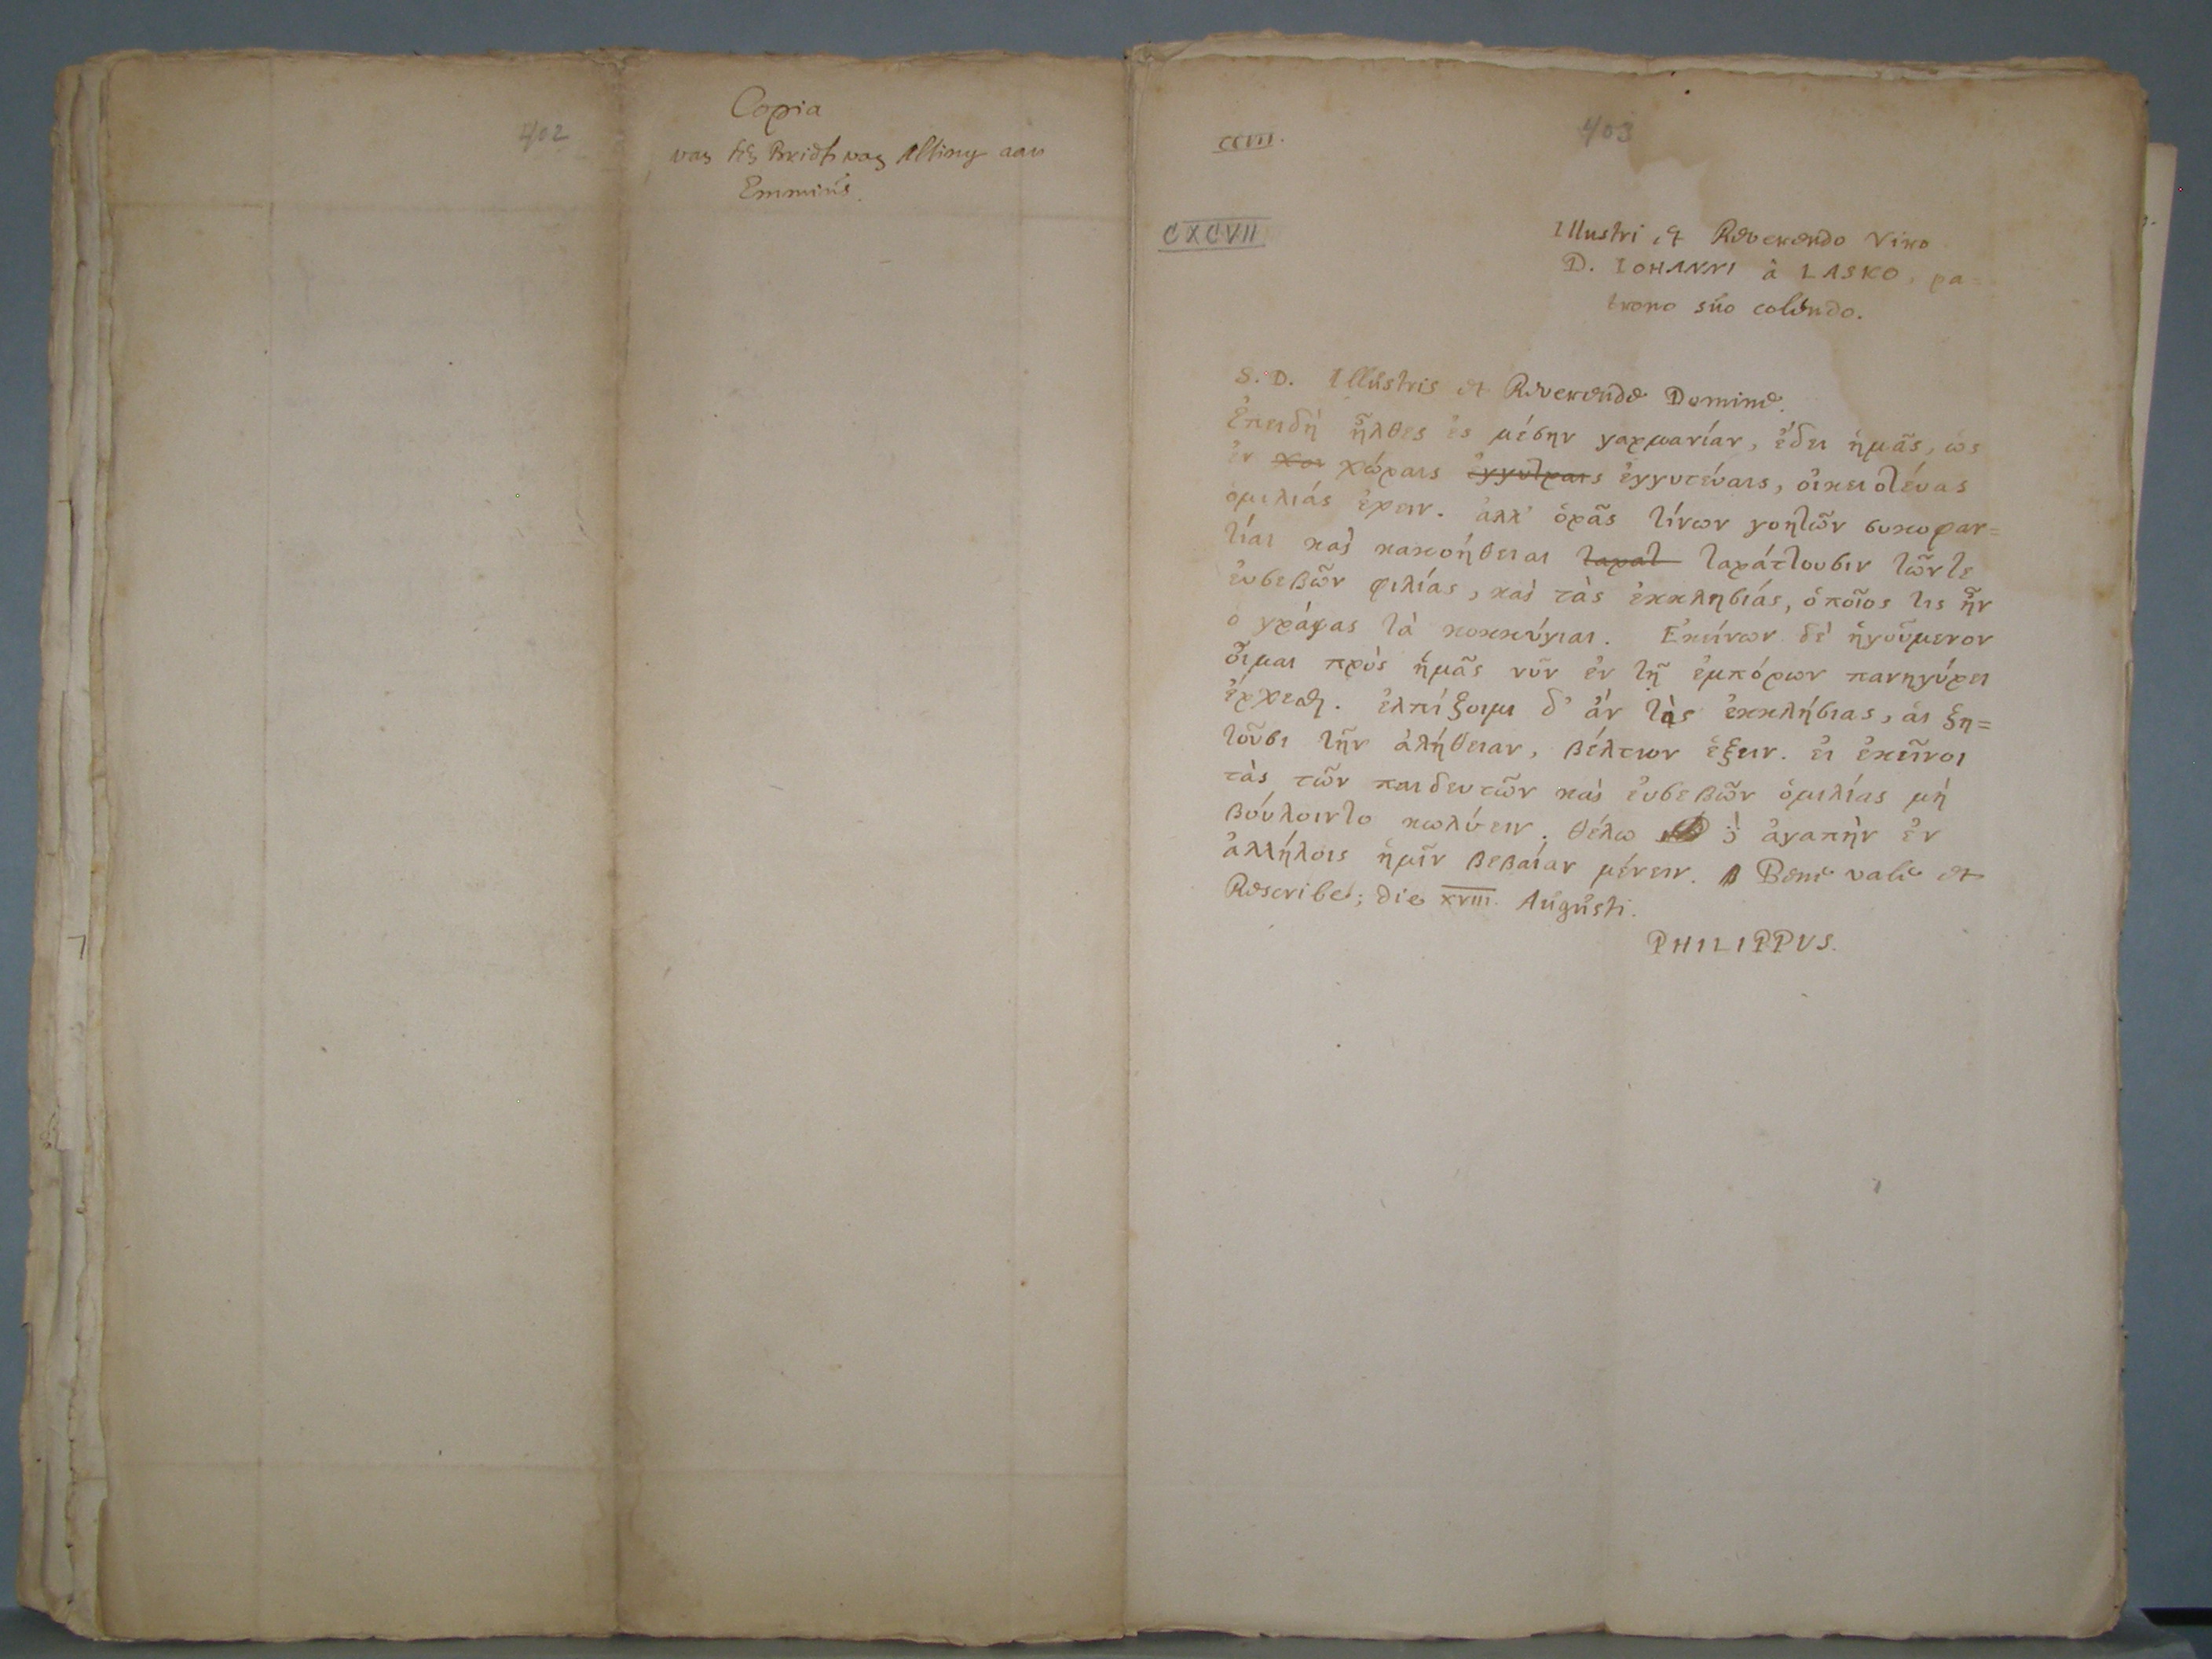 402
Copia
van Alting aan
Emmius.
CCIII.
403
CXCVII
Illustri et Reverendo Viro
D. IOHANNI à LASKO, pa=
trono suo colendo.
S. D. Illustris et Reverende Domine.
Ἐπειδὴ ἦλθες ἐς μέσην γαρμανίαν, ἔδει ἡμᾶς, ὡς
ἐν χορ χώραις ἐγγυτραις ἐγγυτέναις,
ὁμιλιάς ἔχειν. ἀλλ' ὁρᾶς τίνων γοητῶν συκοφαν=
τίαι καὶ κακοήθειαι ταρατ ταράττουσιν τῶν τε
ἐυσεβῶν φιλίας, καὶ τὰς ἐκκλησιάς, ὁποῖος τις ἦν
ὁ γράψας τὰ κοκκύγιαι. Εκείνων δὲ ἡγοῦμενον
ὀῖμαι πρὸς ἡμᾶς νῦν ἐν τῇ ἐμπόρων πανηγύρει
ἔρχεσθ. ἐλπίζοιμι δ' ἄν τὰς ἐκκλήσιας, ἁι ζη=
τοῦσι τῆν ἀλήθειαν, βέλτιον ἕξειν. ἐι ἐκεῖνοι
τὰς τῶν παιδευτῶν καὶ ἐυσεβῶν ὁμιλίας μὴ
βούλοιντο κωλύειν. θέλω ἀγαπὴν ἐν
ἀλλήλοις ἡμῖν βεβαίαν μένειν. Bene vale et
Rescribe; die XVIII. Augusti.
PHILIPPVS.